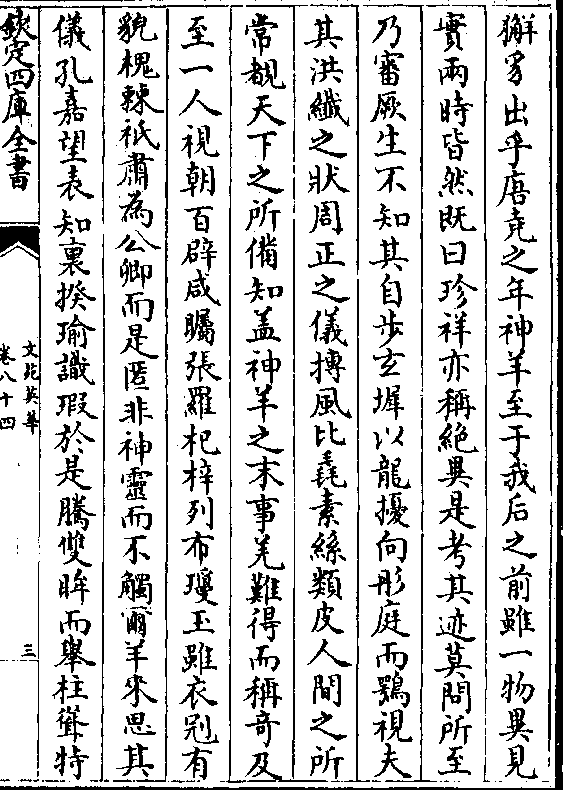 獬豸出乎唐堯之年神羊至于我后之前雖一物異見
實兩時皆然既曰珍祥亦稱絶異是考其迹莫問所至
乃審厥生不知其自步玄墀以龍擾向彤庭而鶚視夫
其洪纖之狀周正之儀摶風比毳素絲類皮人間之所
常覩天下之所備知盖神羊之末事羌難得而稱奇及
至一人視朝百辟咸矚張羅杞梓列布瓊玉雖衣冠有
貌槐棘祇肅為公卿而是匿非神靈而不觸爾羊來思其
儀孔嘉望表知裏揆瑜識瑕於是騰雙眸而舉柱聳特
欽定四庫全書
文苑英華
卷八十四
三